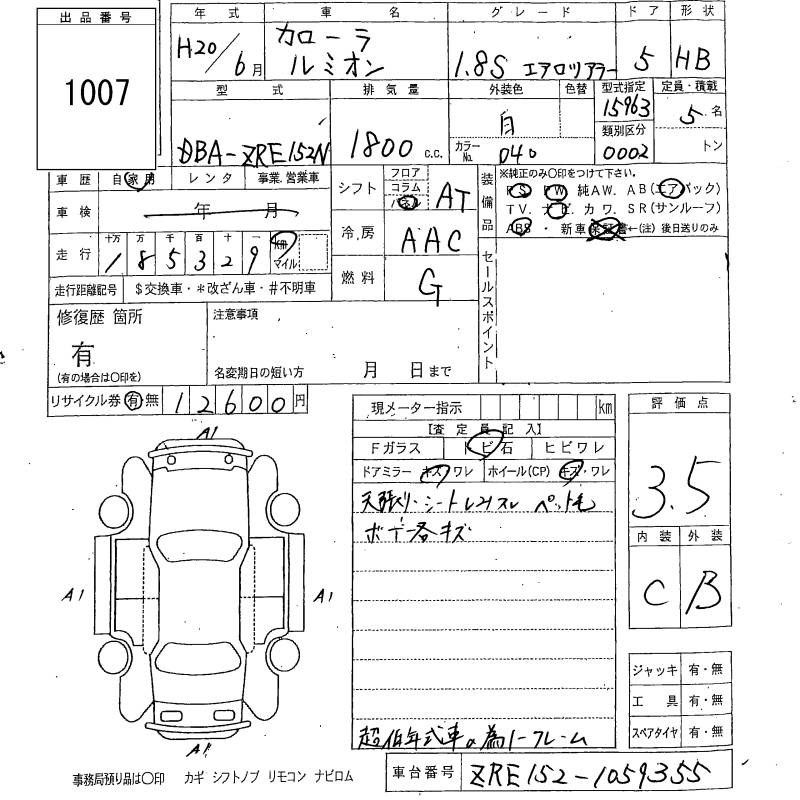 出品番号
1007
年式 車名 グレード ドア 形状
H20/6月 カローラ ルミオン 1.8S エアロツアラー 5 HB
型式 排気量 外装色 色替 型式指定 定員・積載
DBA-ZRE152N 1800 c.c. 白 カラーNo. 040 15963 5名
類別区分 0002 トン
車歴 自家用 レンタ 事業.営業車
車検 年 月
走行 十万 万 千 百 十 一
1 8 5 3 2 9 km マイル
走行距離記号 $交換車・*改ざん車・#不明車
シフト フロア コラム パネル AT
冷房 AAC
燃料 G
装備品
※純正のみ〇印をつけて下さい。
PS PW 純AW. AB(エアバック)
TV. ナビ. カワ. SR(サンルーフ)
ABS・新車保証書←(注) 後日送りのみ
セールスポイント
修復歴 箇所
有
(有の場合は〇印を)
注意事項
名変期日の短い方 月 日まで
リサイクル券 有 無 12600円
現メーター指示 km
【査定員記入】
Fガラス トビ石 ヒビワレ
ドアミラー キズ・ワレ ホイール(CP) キズ・ワレ
天張り・シートレスレ ペット毛
ボデー各キズ
超低年式車の為ノークレーム
評価点
3.5
内装 外装
C B
ジャッキ 有・無
工具 有・無
スペアタイヤ 有・無
A1
A1
A1
A1
事務局預り品は〇印 カギ シフトノブ リモコン ナビロム
車台番号 ZRE152-1059355